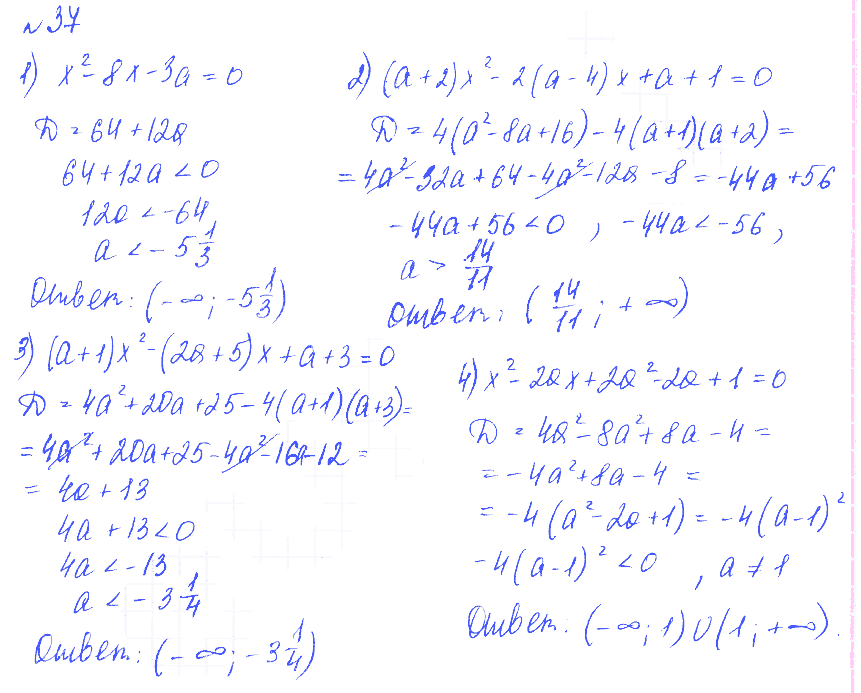 №37
1) x² - 8x - 3a = 0
D = 64 + 12a
64 + 12a < 0
12a < -64
a < -5 1/3
Ответ: (-∞; -5 1/3)
2) (a+2)x² - 2(a-4)x + a + 1 = 0
D = 4(a² - 8a + 16) - 4(a+1)(a+2) =
= 4a² - 32a + 64 - 4a² - 12a - 8 = -44a + 56
-44a + 56 < 0 , -44a < -56 ,
a > 14/11
Ответ: (14/11 ; +∞)
3) (a+1)x² - (2a+5)x + a + 3 = 0
D = 4a² + 20a + 25 - 4(a+1)(a+3) =
= 4a² + 20a + 25 - 4a² - 16a - 12 =
= 4a + 13
4a + 13 < 0
4a < -13
a < -3 1/4
Ответ: (-∞; -3 1/4)
4) x² - 2ax + 2a² - 2a + 1 = 0
D = 4a² - 8a² + 8a - 4 =
= -4a² + 8a - 4 =
= -4(a² - 2a + 1) = -4(a-1)²
-4(a-1)² < 0 , a ≠ 1
Ответ: (-∞; 1) ∪ (1; +∞).